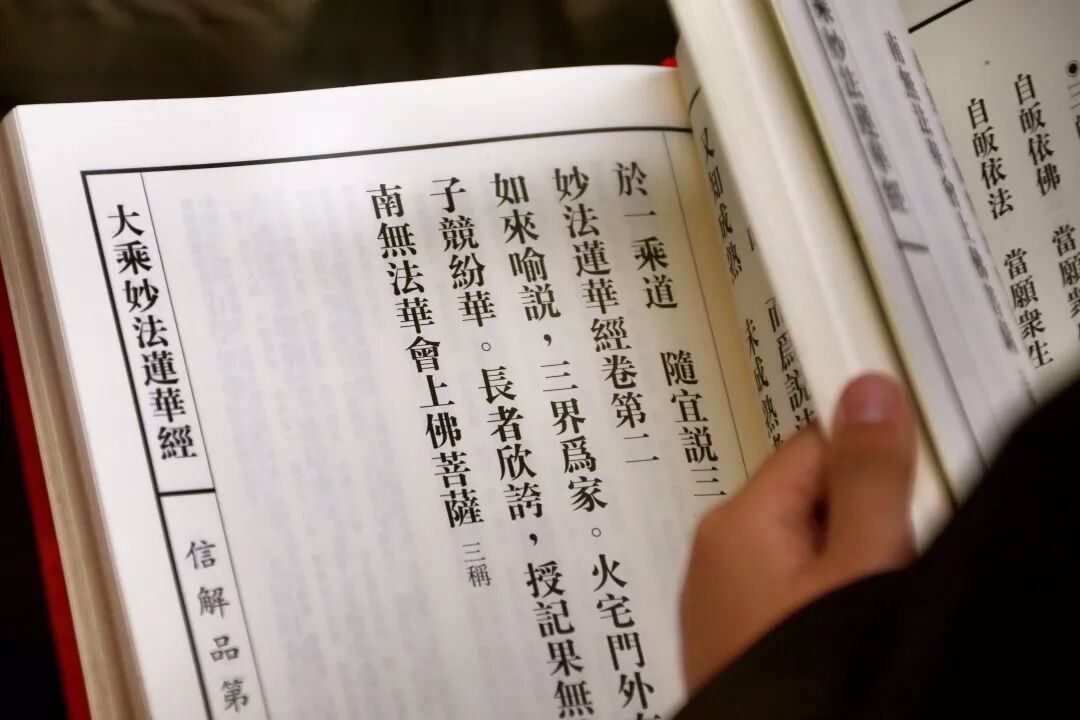 自皈依佛　當願衆
自皈依法　當願衆生
南無法華會上佛
乘妙法蓮華經
而爲説法
又知成熟　未成熟者
於一乘道　隨宜説三
妙法蓮華經卷第二
如來喻説，三界爲家。火宅門外
子競紛華。長者欣誇，授記果無
南無法華會上佛菩薩 三稱
大乘妙法蓮華經
信解品第